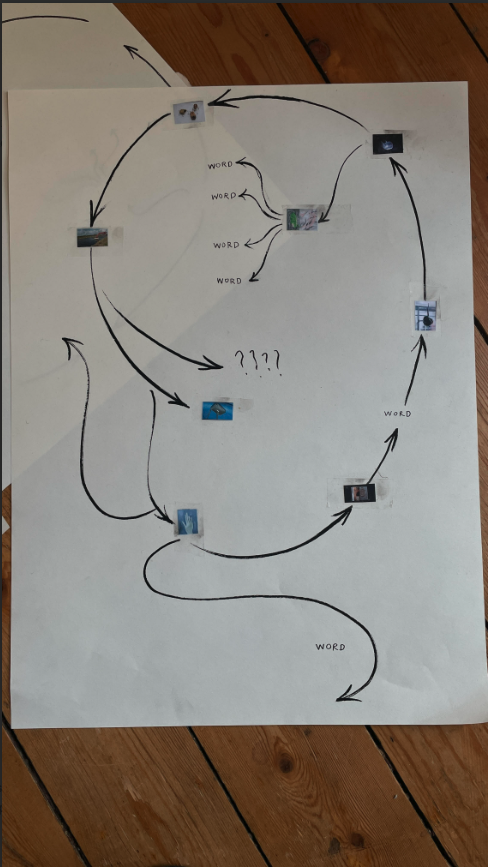 WORD
WORD
WORD
WORD
????
WORD
WORD